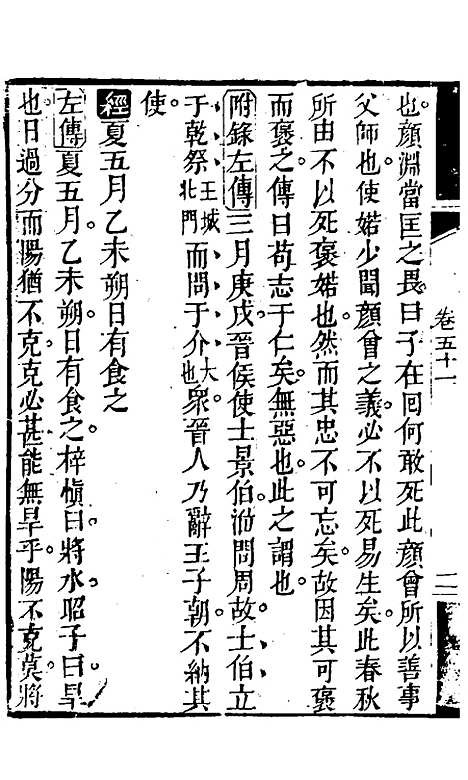 卷五十一
二
也顔淵當匡之畏曰子在囘何敢死此顔曾所以善事
父師也使婼少聞顔曾之義必不以死易生矣此春秋
所由不以死褒婼也然而其忠不可忘矣故因其可褒
而褒之傳曰苟志于仁矣無惡也此之謂也
附錄左傳三月庚戌晉侯使士景伯涖問周故士伯立
于乾祭王城北門而問于介大也衆晉人乃辭王子朝不納其
使
經夏五月乙未朔日有食之
左傳夏五月乙未朔日有食之梓慎曰將水昭子曰旱
也日過分而陽猶不克克必甚能無旱乎陽不克莫將